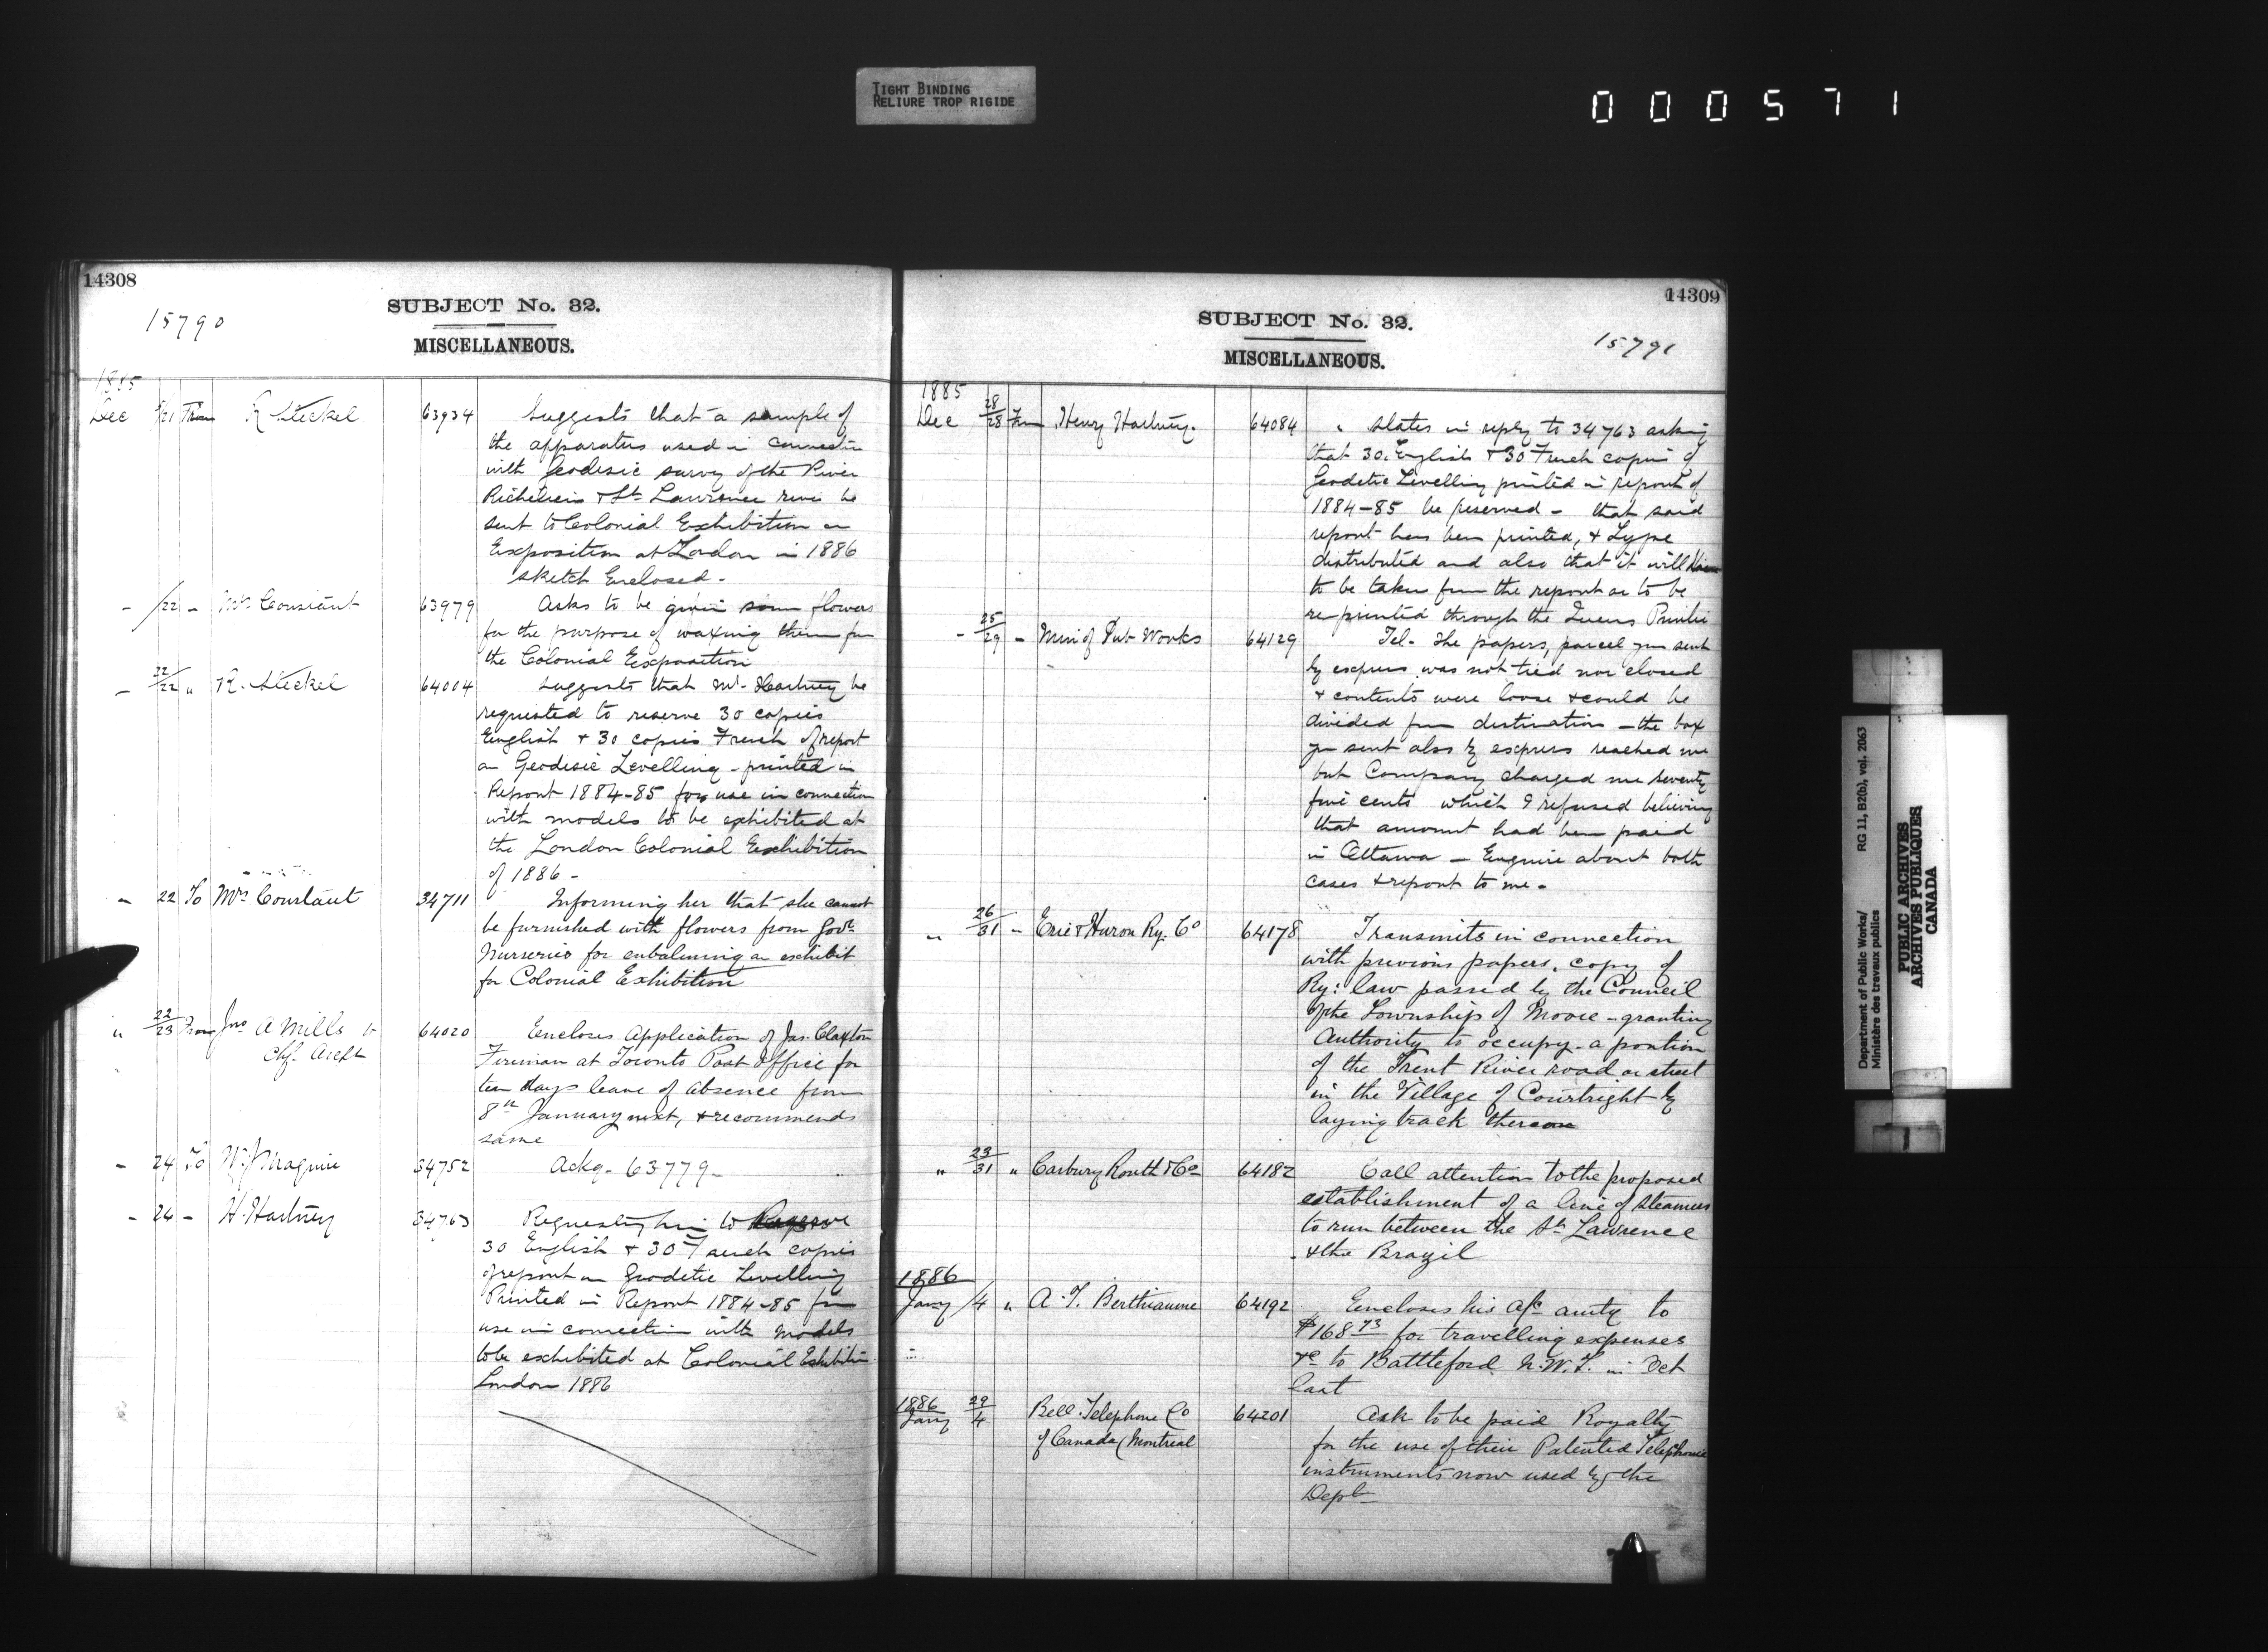 TIGHT BINDING
RELIURE TROP RIGIDE
000571
14308
15790
SUBJECT No. 32.
MISCELLANEOUS.
1885
Dec /21 From R Steckel 63934 Suggests that a sample of
the apparatus used in connection
with Geodesic survey of the River
Richelieu & St. Lawrence river be
sent to Colonial Exhibition or
Exposition at London in 1886
sketch Enclosed.
- /22 - Mrs Constant 63979 Asks to be given some flowers
for the purpose of waxing them for
the Colonial Exposition
- 22/22 " R. Steckel 64004 Suggests that Mr. Hartney be
requested to reserve 30 copies
English & 30 copies French of report
on Geodesic Levelling - printed in
Report 1884-85 for use in connection
with models to be exhibited at
the London Colonial Exhibition
of 1886 -
- 22 To Mrs Constant 34711 Informing her that she cannot
be furnished with flowers from Govt.
Nurseries for embalming an exhibit
for Colonial Exhibition
" 22/23 From Jno A Mills 64020 Encloses Application of Jas. Claxton
Fireman at Toronto Post Office for
ten days leave of absence from
8th January next, & recommends
same
- 24 To W. J. Maguire 34752 Ackg. 63779-
- 24 - H. Hartney 34763 Requesting him to Reserve
30 English & 30 French copies
of report on Geodetic Levelling
Printed in Report 1884-85 for
use in connection with Models
to be exhibited at Colonial Exhibition
London 1886
14309
SUBJECT No. 32.
15791
MISCELLANEOUS.
1885
Dec 28/28 Fm Henry Hartney. 64084 " States in reply to 34763 asking
that 30 English & 30 French copies of
Geodetic Levelling printed in report of
1884-85 be reserved - that said
report has been printed, & type
distributed and also that it will have
to be taken from the report or to be
reprinted through the Queens Printer
- 25/29 - Min of Pub Works 64129 Tel- The papers, parcel you sent
by express was not tied nor closed
& contents were loose & could be
divided from destination - the box
you sent also by express reached me
but Company charged me seventy
five cents which I refused believing
that amount had been paid
in Ottawa - Enquire about both
cases & report to me.
" 26/31 - Erie & Huron Ry. Co 64178 Transmits in connection
with previous papers, copy of
By: law passed by the Council
of the Township of Moore - granting
Authority to occupy a portion
of the Front River road or street
in the Village of Courtright by
laying track thereon
" 23/31 " Carbury Routh & Co 64182 Call attention to the proposed
establishment of a line of Steamers
to run between the St. Lawrence
& the Brazil
1886
Jany /4 " A. T. Berthiaume 64192 Encloses his a/c amtg to
$168 73 for travelling expenses
&c to Battleford N.W.T. in Oct
last
1886
Jany 29/4 Bell Telephone Co 64201 Ask to be paid Royalty
of Canada (Montreal for the use of their Patented Telephone
instruments now used by the
Dept
Department of Public Works/ RG 11, B2(b), vol. 2063
Ministère des travaux publics
PUBLIC ARCHIVES
ARCHIVES PUBLIQUES
CANADA